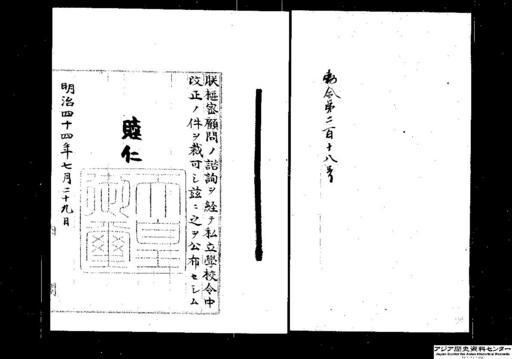 勅令第二百十八号
朕樞密顧問ノ諮詢ヲ経テ私立學校令中
改正ノ件ヲ裁可シ茲ニ之ヲ公布セシム
睦仁
天皇御璽
明治四十四年七月二十九日
アジア歴史資料センター
Japan Center for Asian Historical Records